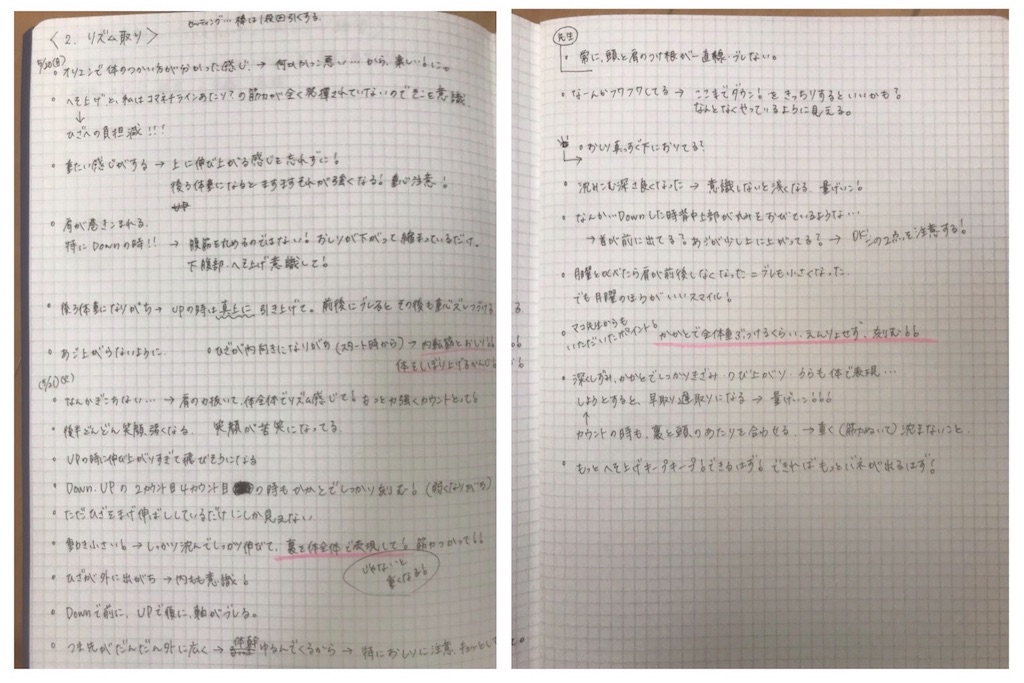 セッティング…棒は1段回引くする.
〈2. リズム取り〉
5/30(月)
• オリエンで体のつかい方が分かった感じ. → 何かかっこ悪い…から, 楽しい!に。
• へそ上げと, 私はコマネチラインあたり?の筋力が全く発揮されていないのでそこを意識
↓
ひざへの負担減!!!
• 重たい感じがする → 上に伸び上がる感じも忘れずに!
後ろ体重になるとますますそれが強くなる! 重心注意!
• 肩が巻きこまれる.
特にDownの時!! → 腹筋を丸めるのではない! おしりが下がって縮まっているだけ.
下腹部・へそ上げ意識して!
• 後ろ体重になりがち → UPの時は真上に引き上げて。前後にブレるとその後も重心ズレつづける
• あご上がらないように.
• ひざが内向きになりがち (スタート時から) → 内転筋とおしり!
体をしぼり上げるかんじ
(5/31)(火)
• なんかぎこちない… → 肩の力抜いて, 体全体でリズム感じて! もっと力強くカウントとって!
• 後半どんどん笑顔強くなる. 笑顔が苦笑になってる.
• UPの時に伸び上がりすぎて飛びそうになる
• Down, UPの2カウント目4カウント目の時もかかとでしっかり刻む! (弱くなりがち)
• ただひざを曲げ伸ばししているだけにしか見えない
• 動き小さい! → しっかり沈んでしっかり伸びて, 裏を体全体で表現して! 筋力つかって!!
じゃないと
重くなる!
• ひざが外に出がち → 内ももを意識!
• Downで前に, UPで後に, 軸がブレる。
• つま先がだんだん外に広く → 体幹ゆるんでくるから → 特におしりに注意, キュッとして。
先生
• 常に, 頭と肩のつけ根が一直線・ブレない。
• なーんかフワフワしてる → ここまでダウン!をきっちりするといいかも?
なんとなくやっているように見える。
• おしり真っすぐ下におりてる?
• 沈みこむ深さ良くなった → 意識しないと浅くなる. 量げいこ!
• なんか…Downした時背中上部が丸みをおびているような…
→ 首が前に出てる? あごが少し上に上がってる? → OK! この2点を注意する!
• 月曜とくらべたら肩が前後しなくなった=ブレも小さくなった.
でも月曜のほうがいいスマイル!
• マコ先生からも
いただいたポイント!
かかとで全体重ぶつけるくらい, えんりょせず, 刻む!!
• 深くしずみ, かかとでしっかりきざみ・のび上がり・うらも体で表現…
しようとすると, 早取り速取りになる → 量げいこ!!!
↑
カウントの時も, 裏と頭のあたりを合わせる. → 重く (筋力ぬいて) 沈まないこと.
• もっとへそ上げキープキープ! できるはず! できればもっとバネが出るはず!